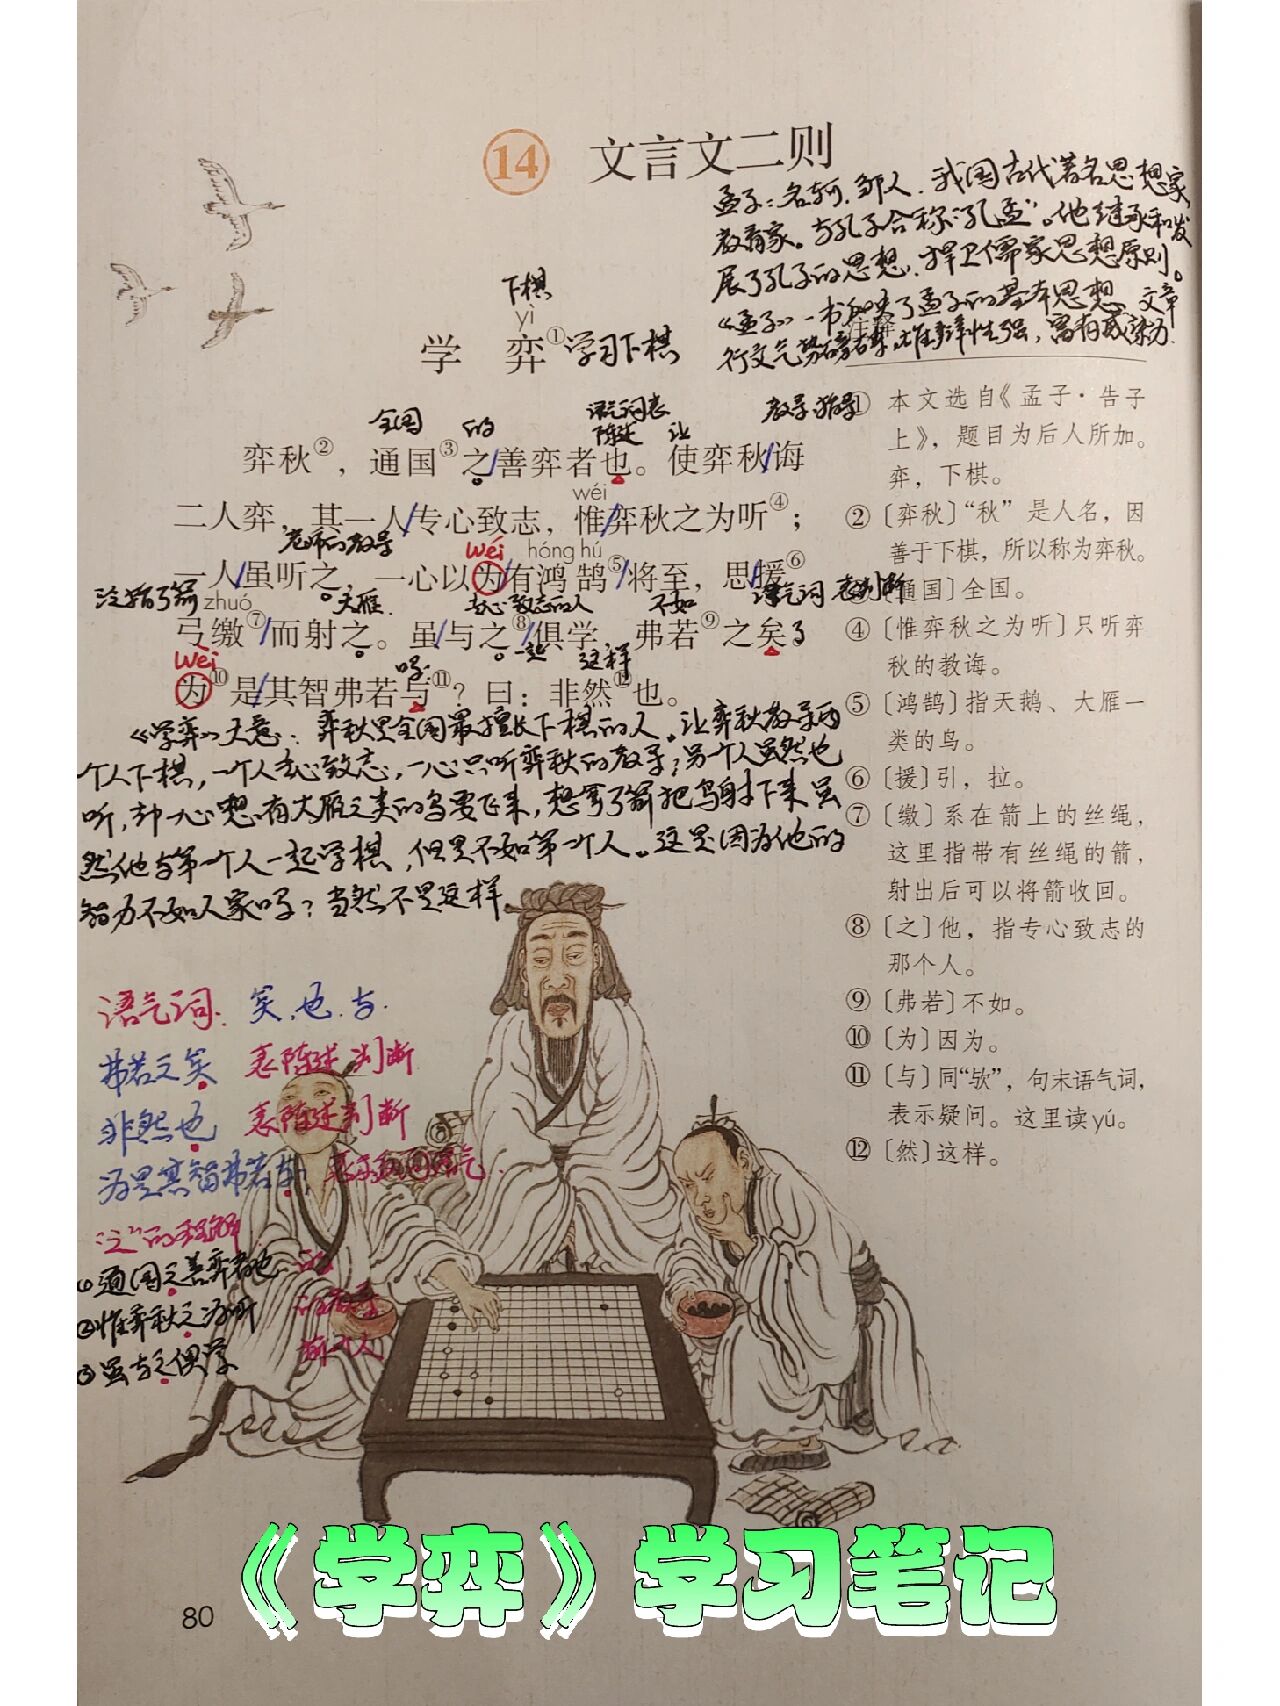 14 文言文二则
孟子:名轲,邹人,我国古代著名思想家,
教育家。与孔子合称“孔孟”。他继承和发
展了孔子的思想,捍卫儒家思想原则。
《孟子》一书反映了孟子的基本思想,文章
行文气势磅礴,雄辩性强,富有感染力.
注释
下棋
yì
学 弈① 学习下棋
全国 的 语气词表陈述 让 教导 指导
弈秋②,通国③之/善弈者也。使弈秋/诲
wéi
二人弈,其一人/专心致志,惟/弈秋之为听④;
老师的教导 wéi hóng hú
一人/虽听之,一心以为/有鸿鹄⑤/将至,思/援⑥
zhuó 大雁. 专心致志的人 不如 语气词 表判断
弓缴⑦/而射之。虽/与之⑧/俱学,弗若⑨之矣了
wèi 吗 一起 这样
为⑩是/其智弗若与⑪?曰:非然⑫也。
《学弈》大意:弈秋是全国最擅长下棋的人。让弈秋教导两
个人下棋,一个人专心致志,一心只听弈秋的教导;另个人虽然也
听,却一心想有大雁之类的鸟要飞来,想拿弓箭把鸟射下来.虽
然他与第一个人一起学棋,但是不如第一个人。这是因为他的
智力不如人家吗?当然不是这样.
语气词. 矣.也.与.
弗若之矣 表陈述判断
非然也 表陈述判断
为是其智弗若与 表示疑问语气.
“之”的理解
①通国之善弈者也 的
②惟弈秋之为听
③虽与之俱学 那个人
① 本文选自《孟子·告子
上》,题目为后人所加。
弈,下棋。
② 〔弈秋〕“秋”是人名,因
善于下棋,所以称为弈秋。
③ 〔通国〕全国。
④ 〔惟弈秋之为听〕只听弈
秋的教诲。
⑤ 〔鸿鹄〕指天鹅、大雁一
类的鸟。
⑥ 〔援〕引,拉。
⑦ 〔缴〕系在箭上的丝绳,
这里指带有丝绳的箭,
射出后可以将箭收回。
⑧ 〔之〕他,指专心致志的
那个人。
⑨ 〔弗若〕不如。
⑩ 〔为〕因为。
⑪ 〔与〕同“欤”,句末语气词,
表示疑问。这里读yú。
⑫ 〔然〕这样。
《学弈》学习笔记
80